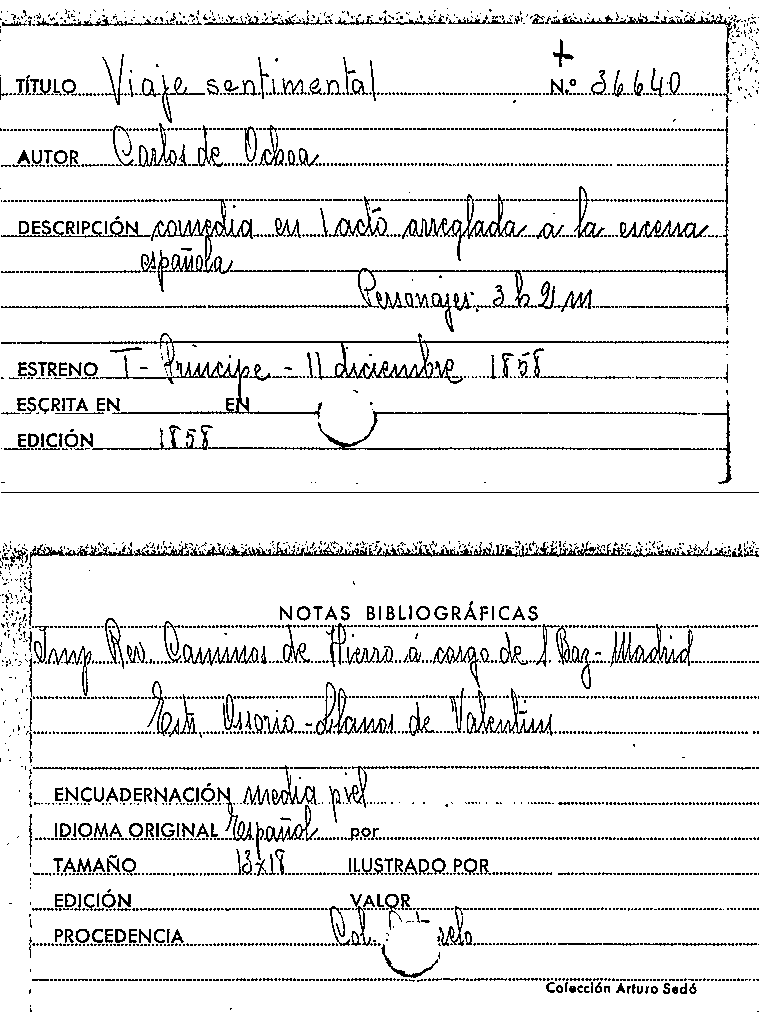 +
TÍTULO Viaje sentimental N.º 36640
AUTOR Carlos de Ochoa
DESCRIPCIÓN comedia en 1 acto arreglada a la escena
española
Personajes: 3 h 2 m
ESTRENO T- Príncipe - 11 diciembre 1858
ESCRITA EN EN
EDICIÓN 1858
NOTAS BIBLIOGRÁFICAS
Imp Rev. Caminos de Hierro á cargo de Baz - Madrid
Estr. Ossorio - Llanos de Valentin
ENCUADERNACIÓN media piel
IDIOMA ORIGINAL Español por
TAMAÑO 13x18 ILUSTRADO POR
EDICIÓN VALOR
PROCEDENCIA Col.
Colección Arturo Sedó